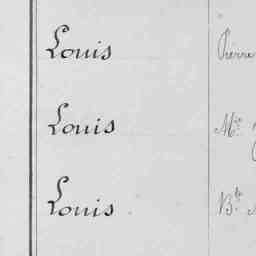 Louis Pierre
Louis Mie
Louis Bte